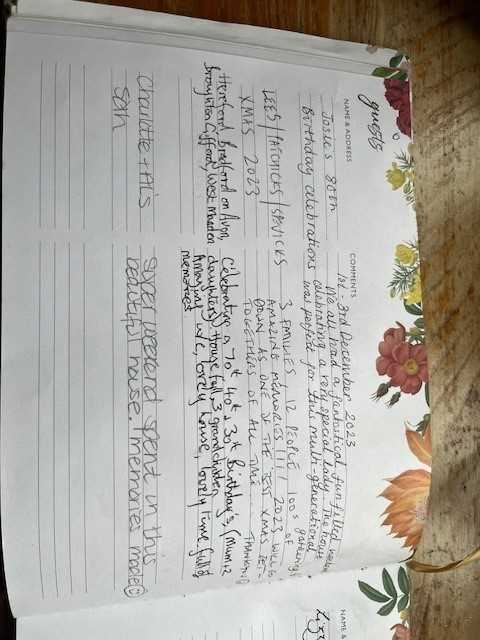 guests
NAME & ADDRESS
COMMENTS
Josie's 80th
Birthday celebrations
1st - 3rd December 2023
We all had a fantastical fun filled
celebrating a very special lady. The house
was perfect for this multi-generational
gathering!
LEES / / 
XMAS 2023
3 FAMILIES, 12 PEOPLE, 100s OF
AMAZING MEMORIES! 2023 WILL GO
DOWN AS ONE OF THE BEST XMAS GET-
TOGETHERS OF ALL TIME. THANKYOU
Hereford, Bradford on Avon,
Broughton Gifford, West Malden
Celebrating a 70th, 40th & 30th Birthday's (Mum + 2
daughters). House full, 3 grandchildren
Amazing w/e, lovely house, lovely time, full of
memories
Charlotte + A's
50th
Super weekend spent in this
beautiful house, memories made
NAME &